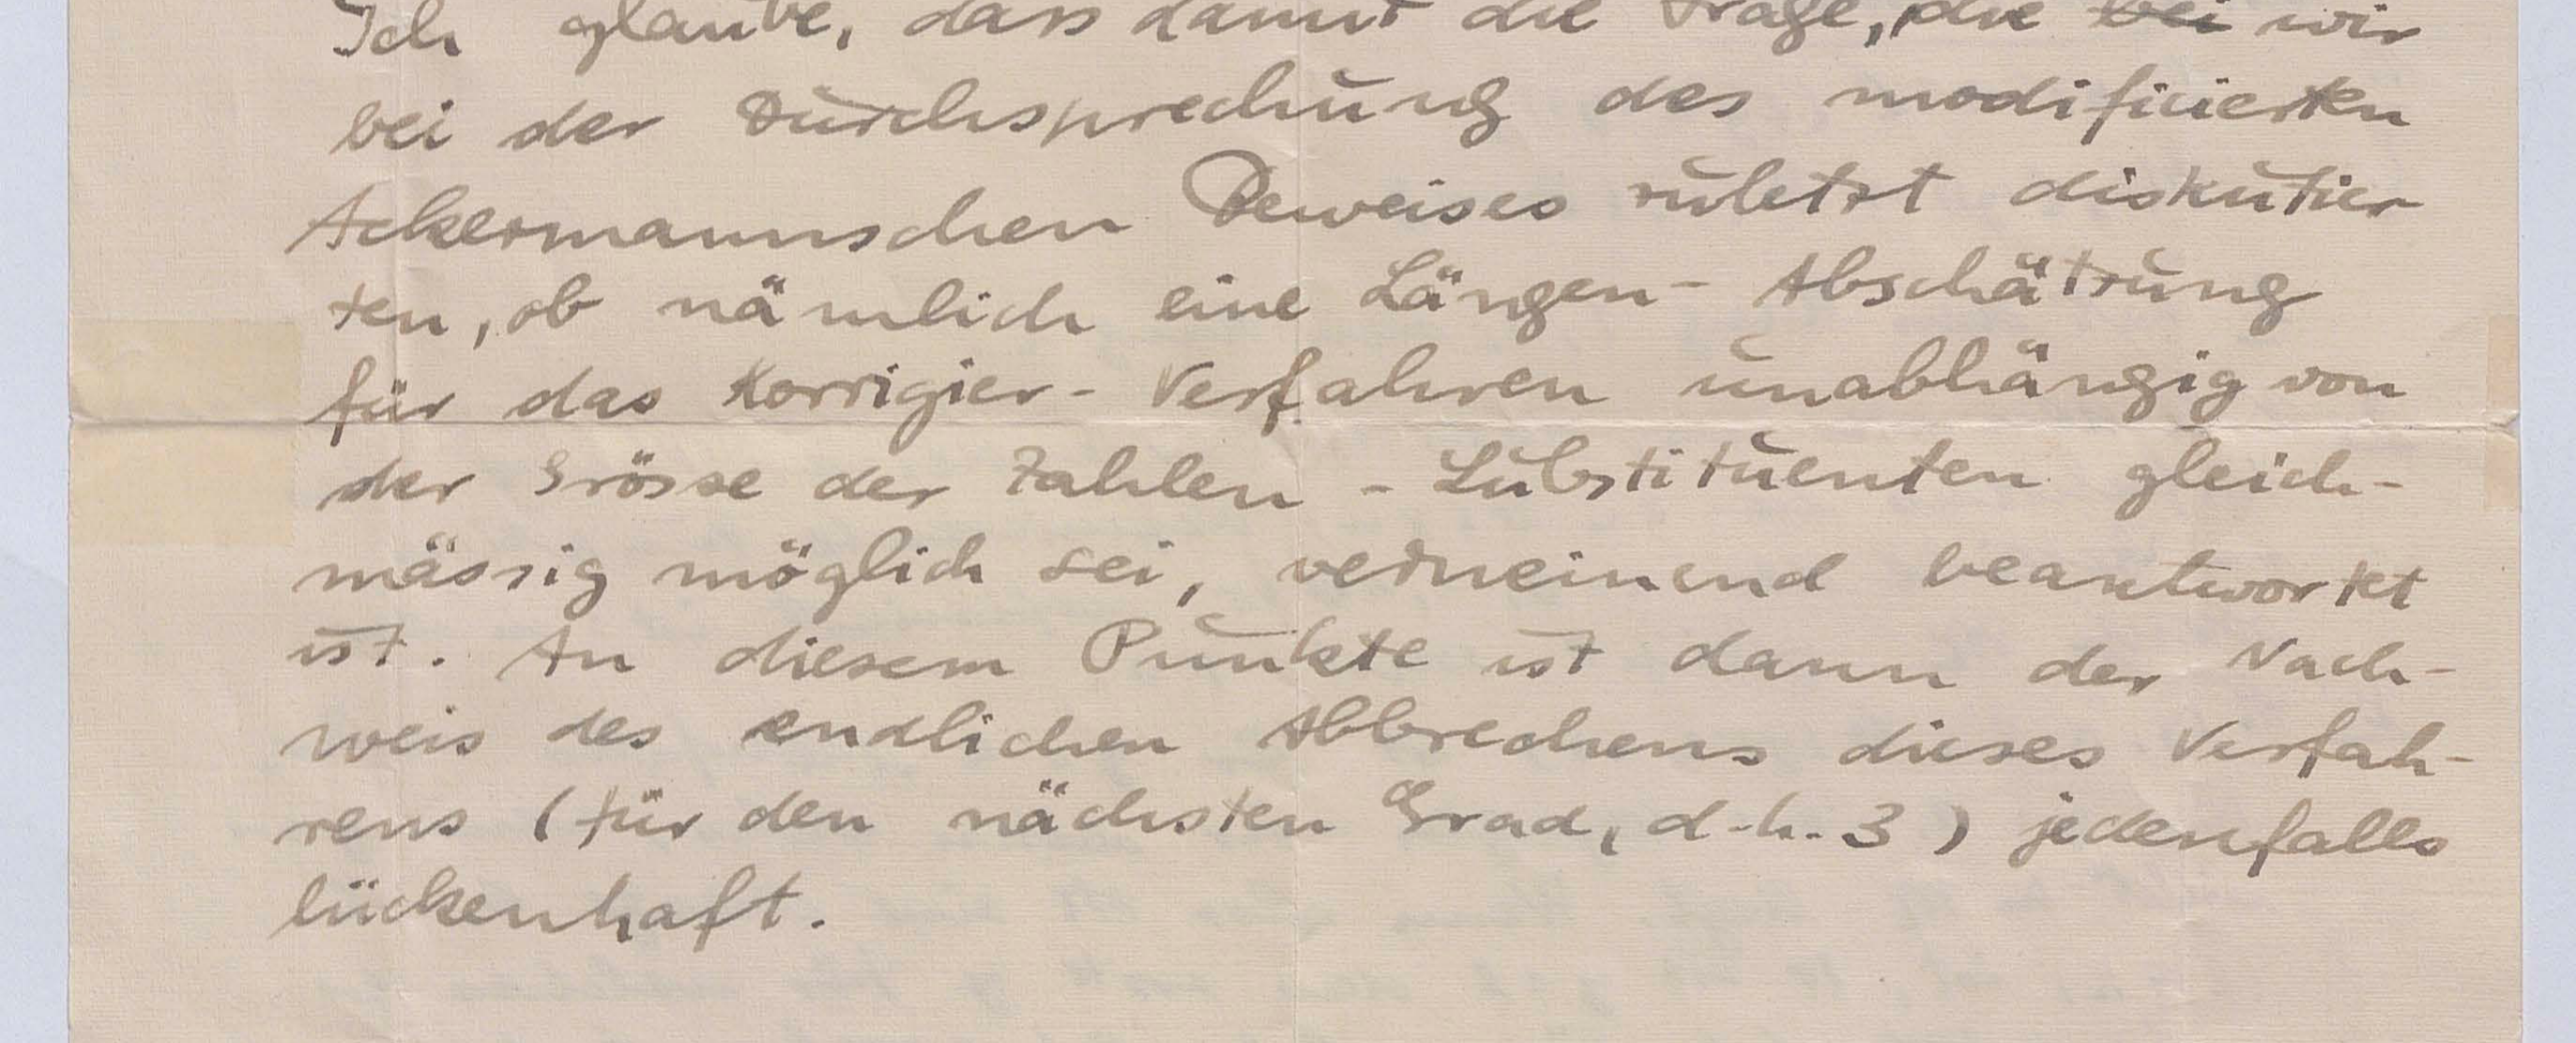 Ich glaube, dass damit die Frage, die bei wir
bei der Durchsprechung des modificierten
Ackermannschen Beweises zuletzt diskutier
ten, ob nämlich eine Längen-Abschätzung
für das Korrigier-Verfahren unabhängig von
der Grösse der Zahlen-Substituenten gleich-
mässig möglich sei, verneinend beantwortet
ist. An diesem Punkte ist dann der Nach-
weis des endlichen Abbrechens dieses Verfah-
rens (für den nächsten Grad, d.h. 3) jedenfalls
lückenhaft.